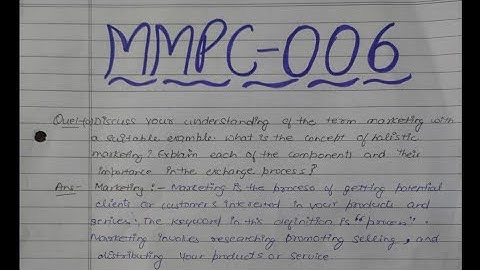 MMPC-006
Que(1a) Discuss your understanding of the term marketing with
a suitable example. What is the concept of holistic
marketing? Explain each of the components and their
importance in the exchange process?
Ans:- Marketing :- Marketing is the process of getting potential
clients or customers interested in your products and
services. The keyword in this definition is "process".
Marketing involves researching promoting selling, and
distributing your products or service.